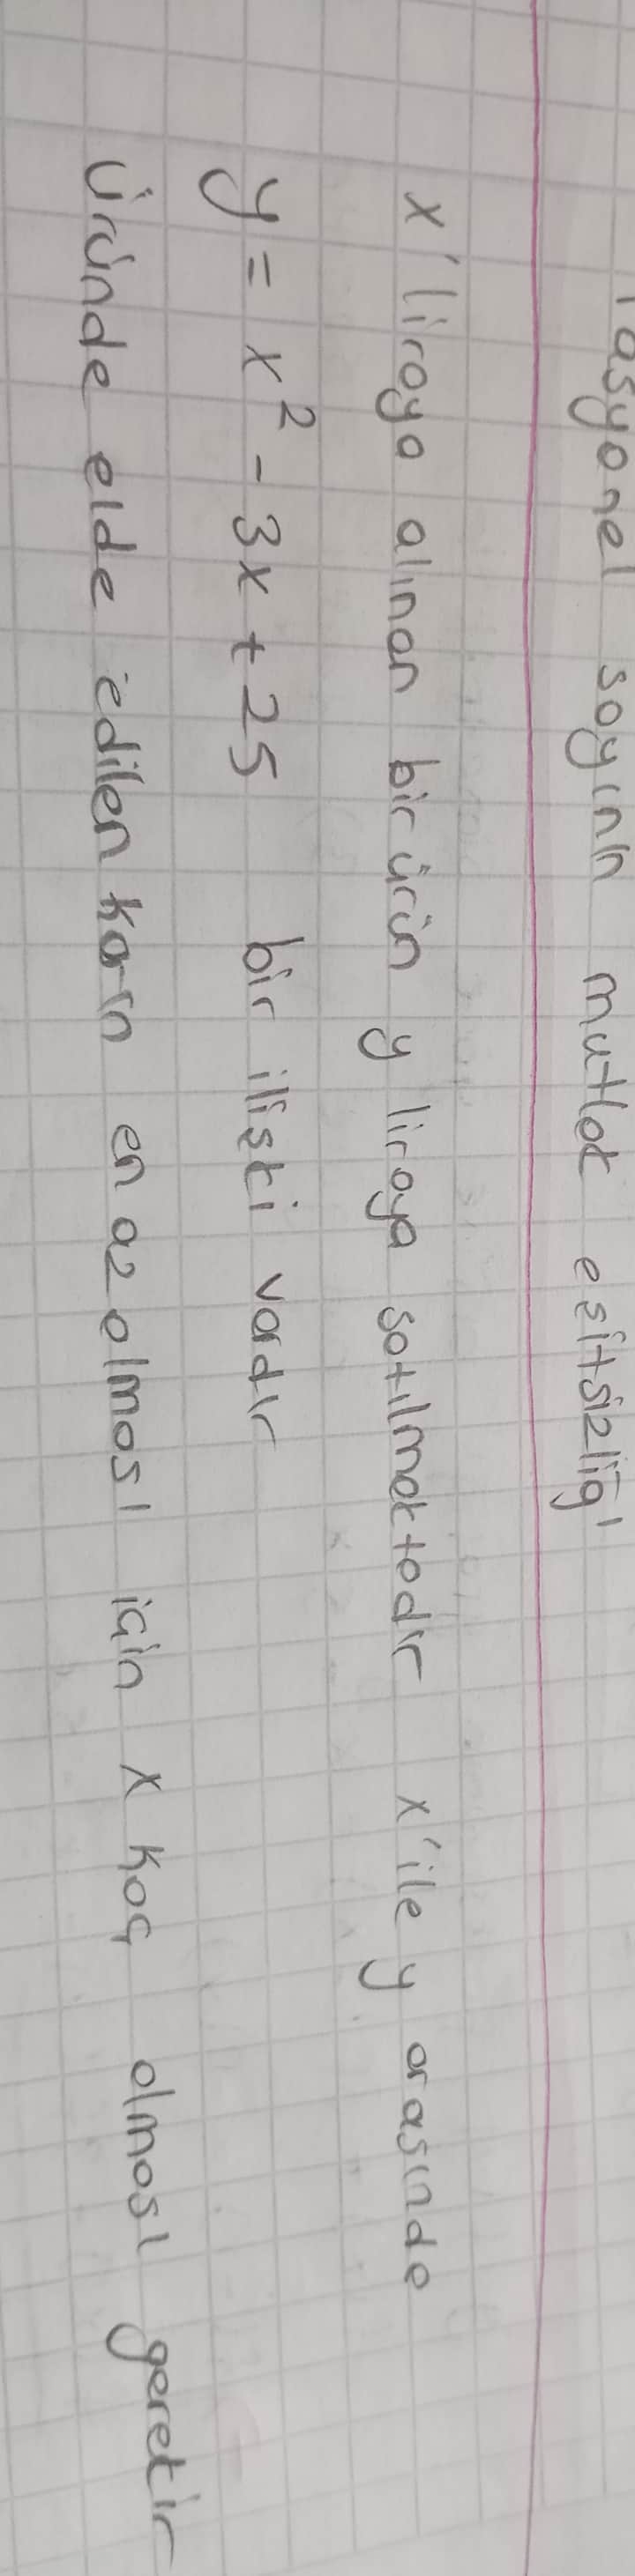 rasyonel sayının mutlak esitsizliği
x' liraya alınan bir ürün y liraya satılmaktadır x'ile y arasında
y = x² - 3x + 25 bir iliski vardır
Üründe elde edilen karın en az olması için x kaç olması gerekir